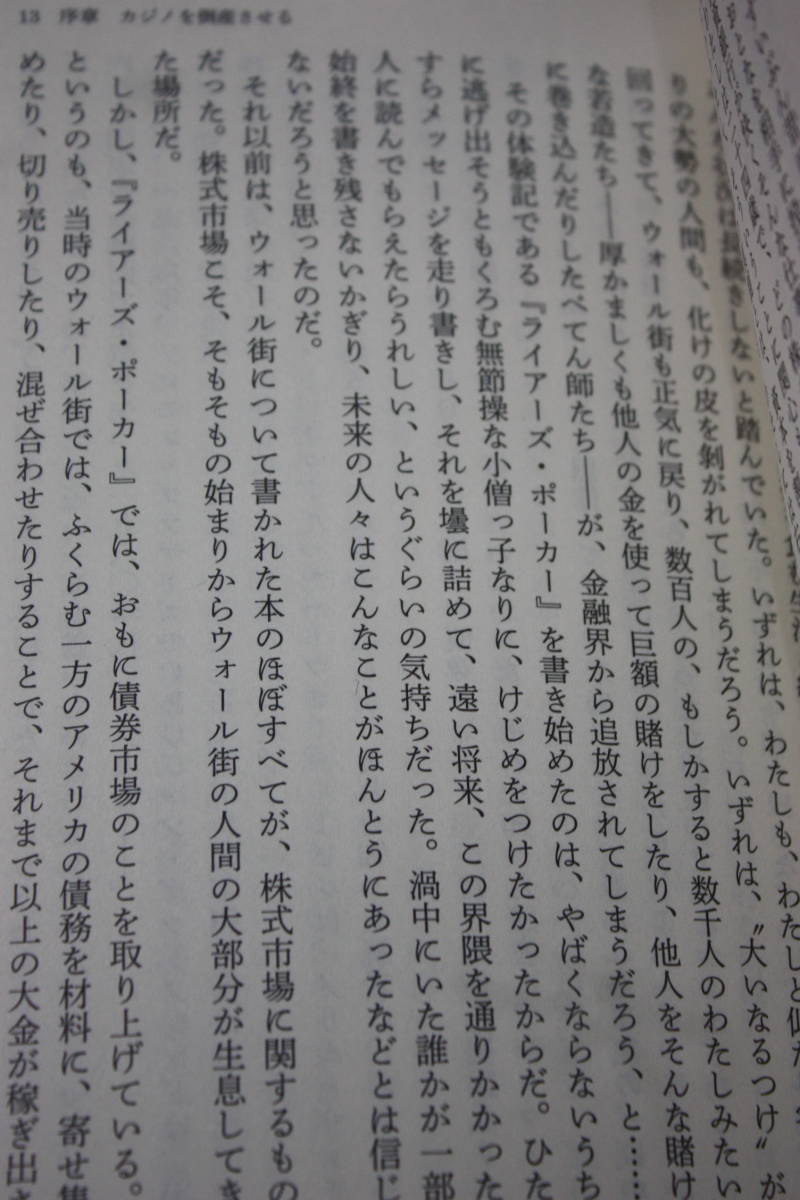 13 序章 カジノを倒産させる
は長続きしないと踏んでいた。いずれは、わたしも、わたしと似た
りの大勢の人間も、化けの皮を剝がれてしまうだろう。いずれは、〝大いなるつけ〟が
回ってきて、ウォール街も正気に戻り、数百人の、もしかすると数千人のわたしみたい
な若造たち――厚かましくも他人の金を使って巨額の賭けをしたり、他人をそんな賭け
に巻き込んだりしたぺてん師たち――が、金融界から追放されてしまうだろう、と……
その体験記である『ライアーズ・ポーカー』を書き始めたのは、やばくならないうち
に逃げ出そうともくろむ無節操な小僧っ子なりに、けじめをつけたかったからだ。ひた
すらメッセージを走り書きし、それを壜に詰めて、遠い将来、この界隈を通りかかった
人に読んでもらえたらうれしい、というぐらいの気持ちだった。渦中にいた誰かが一部
始終を書き残さないかぎり、未来の人々はこんなことがほんとうにあったなどとは信じ
ないだろうと思ったのだ。
それ以前は、ウォール街について書かれた本のほぼすべてが、株式市場に関するもの
だった。株式市場こそ、そもそもの始まりからウォール街の人間の大部分が生息してき
た場所だ。
しかし、『ライアーズ・ポーカー』では、おもに債券市場のことを取り上げている。
というのも、当時のウォール街では、ふくらむ一方のアメリカの債務を材料に、寄せ集
めたり、切り売りしたり、混ぜ合わせたりすることで、それまで以上の大金が稼ぎ出さ